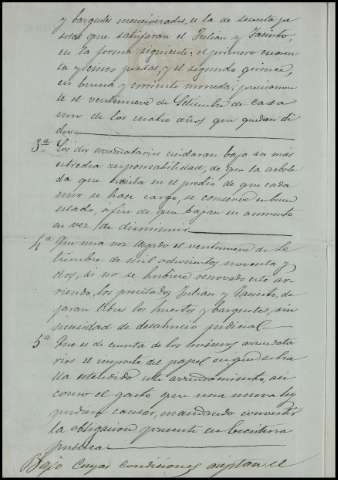 y barquete mencionados, es la de sesenta pe
setas que satisfarán el Julián y Jacinto,
en la forma siguiente: el primero cuaren
ta y cinco pesetas, y el segundo quince,
en buena y corriente moneda, precisamen
te el veintinueve de Setiembre de cada
uno de los cuatro años que quedan di
chos.
3ª Los dos arrendatarios cuidarán bajo su más
estrecha responsabilidad, de que la arbole
da que haya en el predio de que cada
uno se hace cargo, se conserve en buen
estado, a fin de que vayan en aumento
en vez de disminuir.
4ª Que una vez llegado el veintinueve de Se
tiembre de mil ochocientos noventa y
dos, si no se hubiere renovado este ar
riendo, los precitados Julián y Jacinto, de
jarán libres los huertos y barquete, sin
necesidad de desahucio judicial.
5ª Que es de cuenta de los mismos arrendata
rios el importe del papel en que se ha
lla extendido este arrendamiento, así
como el gasto que una nueva ley
pudiera causar, mandando convertir
la obligación presente en Escritura
pública.
Bajo cuyas condiciones aceptan el